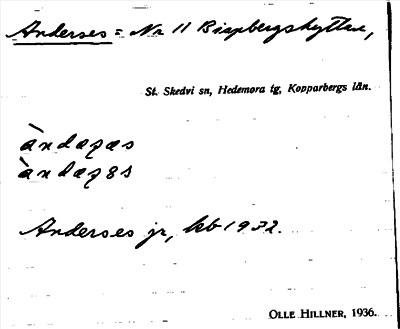 Anderses = Nr 11 Bispbergshyttan,
St. Skedvi sn, Hedemora tg, Kopparbergs län.
àndæʂæs
àndæʂɛs
Anderses jr, kb 1932.
OLLE HILLNER, 1936.